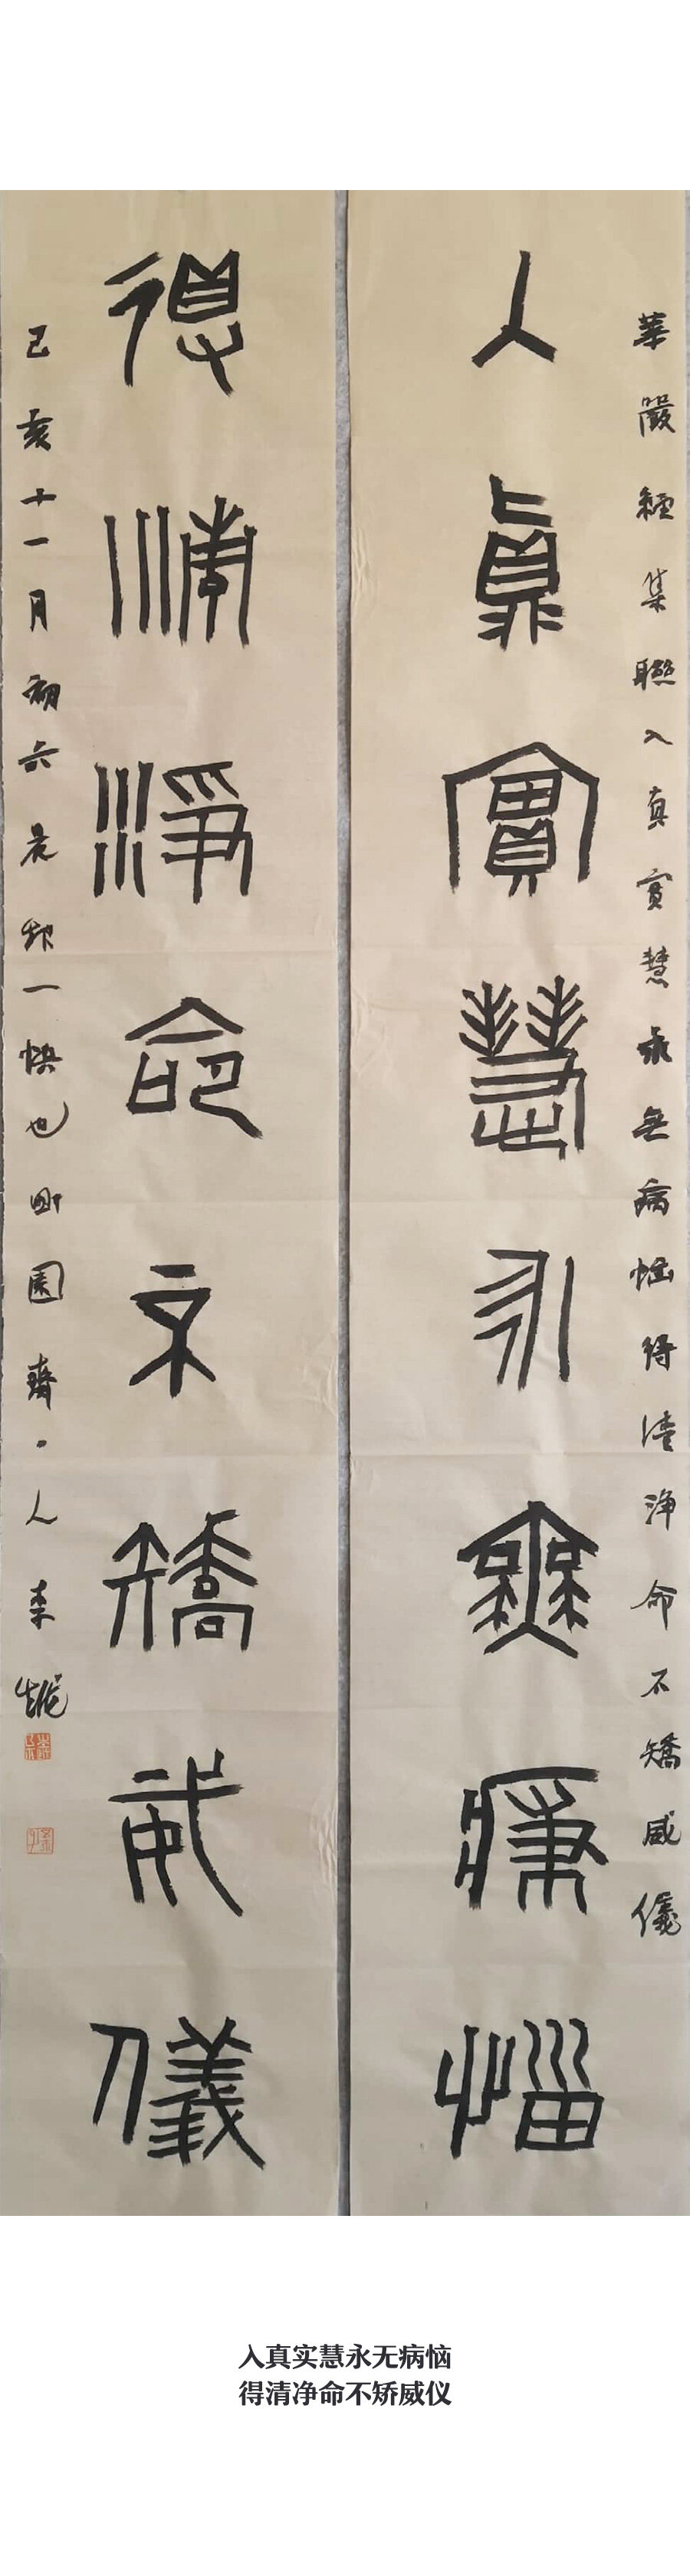 華嚴經集聯入真實慧永無病惱得清淨命不矯威儀
入真實慧永無病惱
得清淨命不矯威儀
己亥十一月初六晨起一快也
園齋主人李
入真实慧永无病恼
得清净命不矫威仪